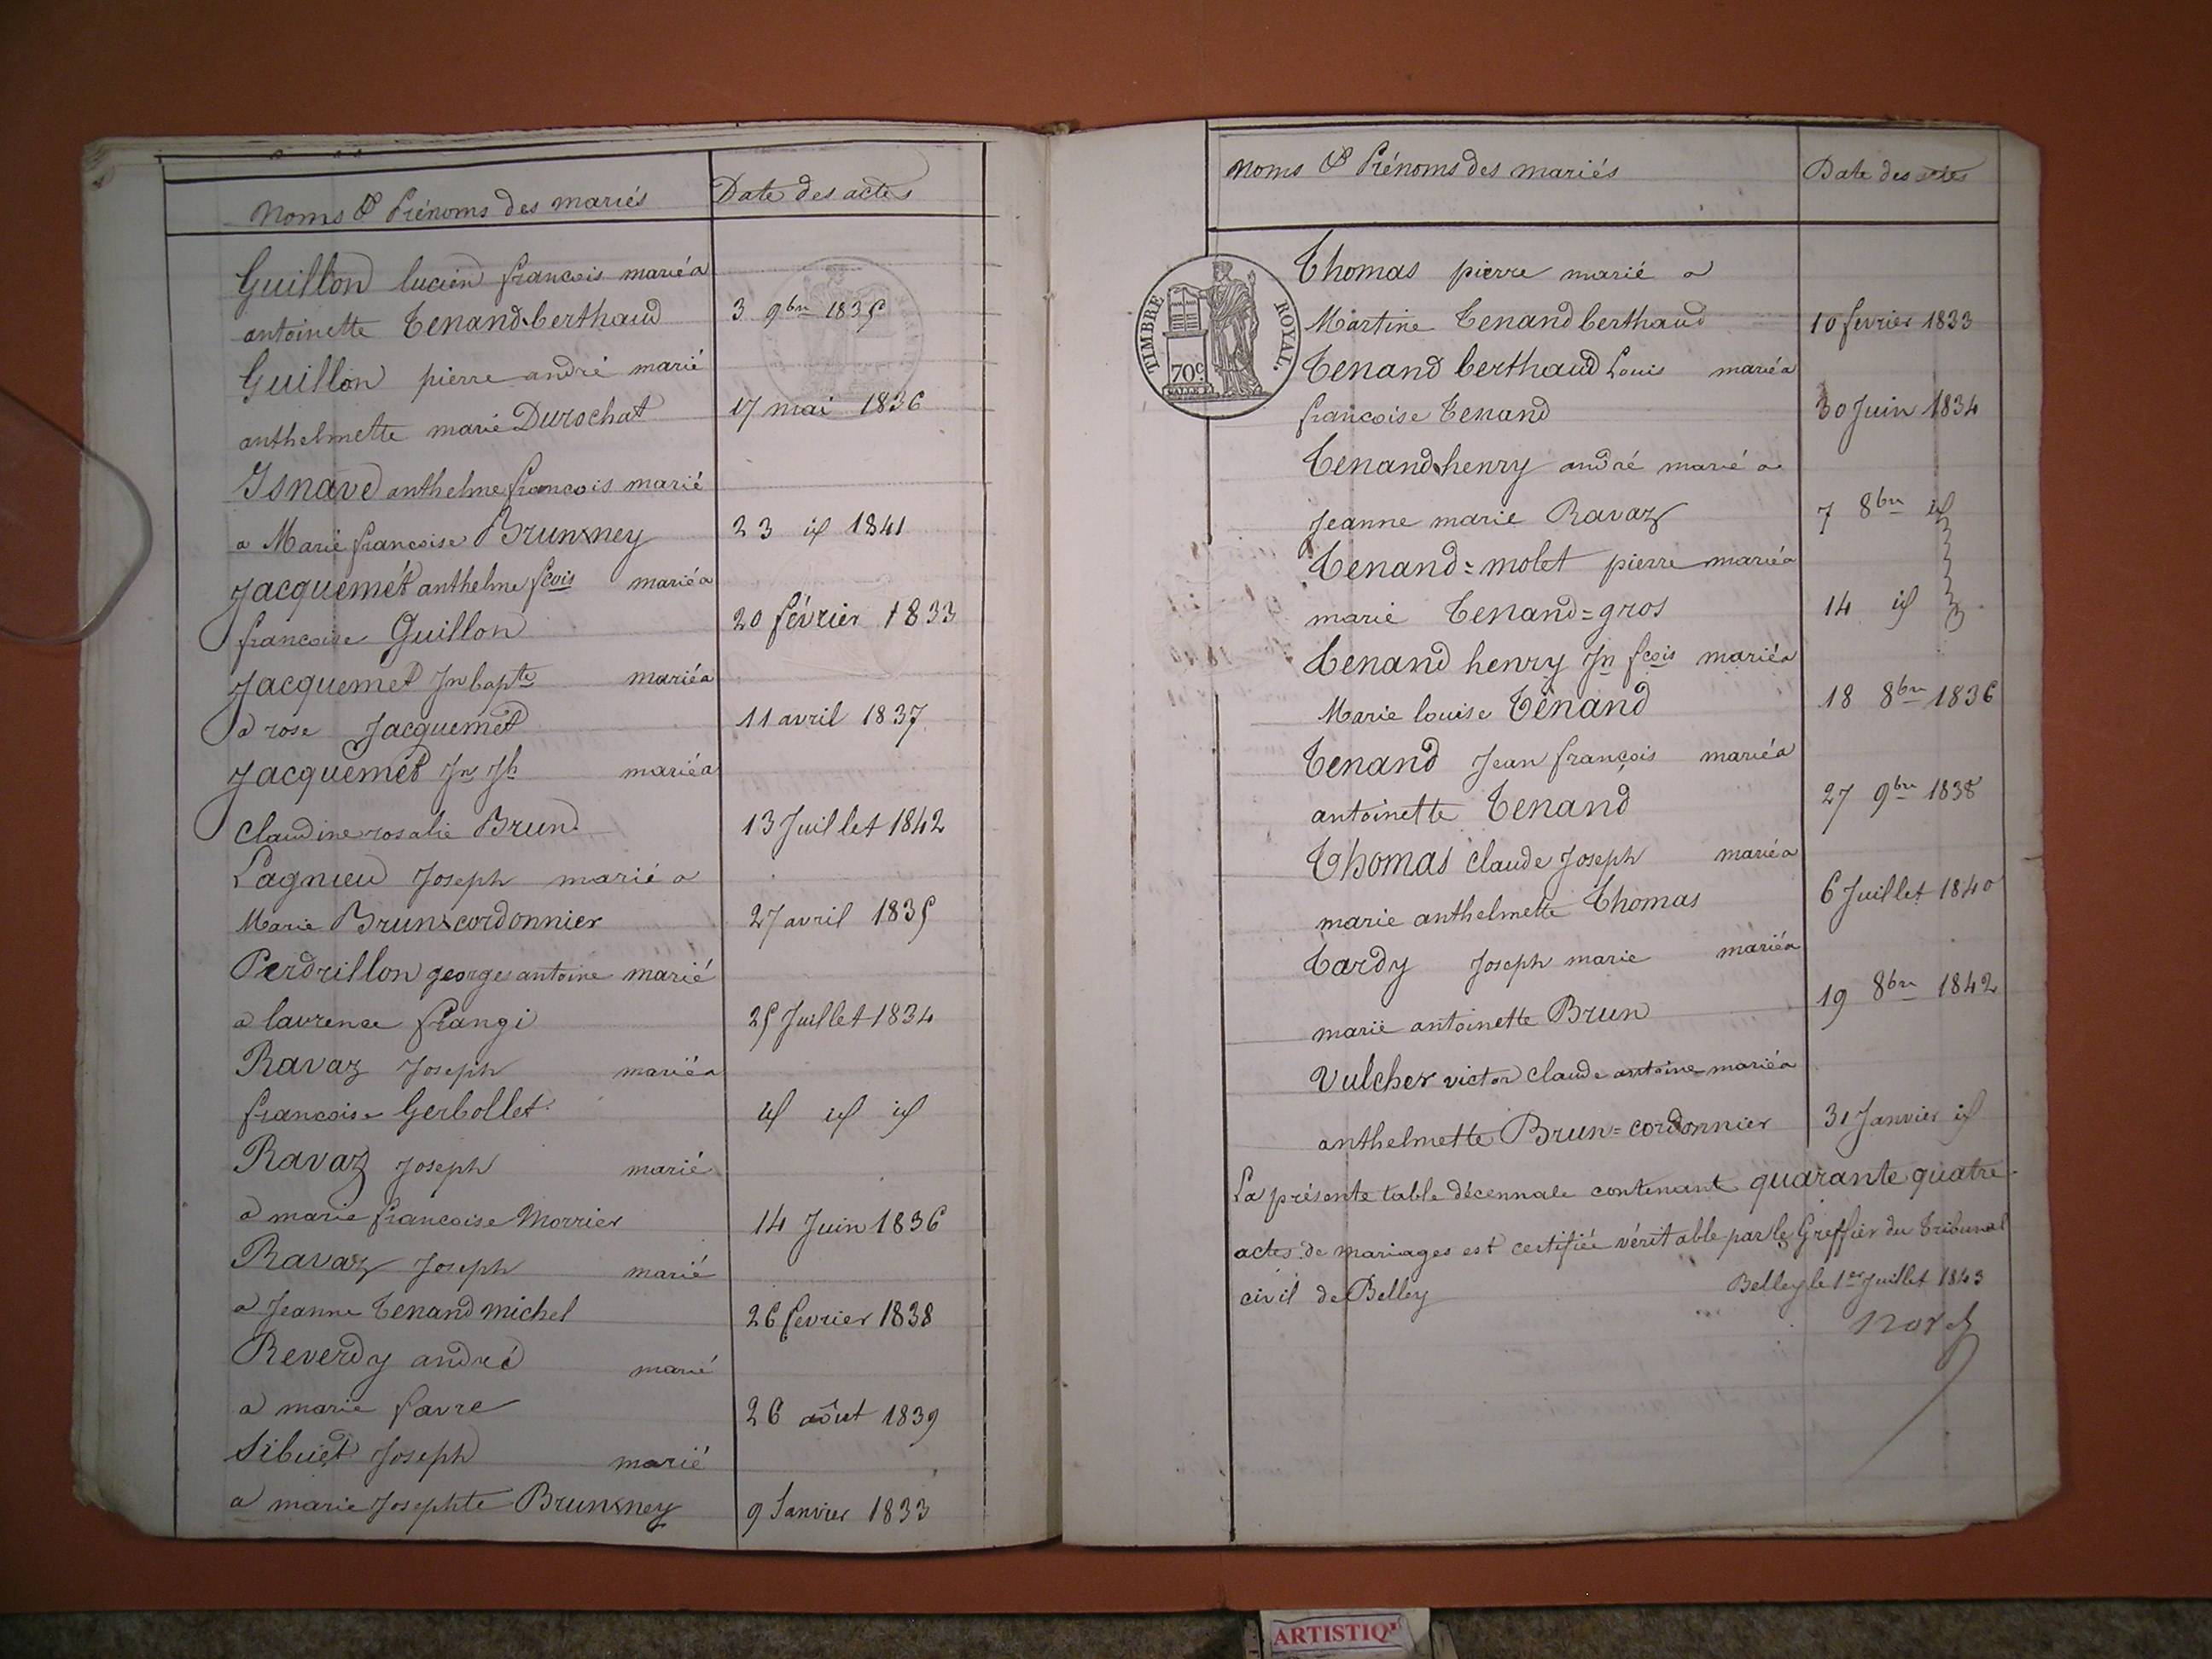 Noms & Prénoms des mariés
Date des actes
Guillon lucien francois marié a
antoinette Tenand-berthaud
3 9bre 1835
Guillon pierre andré marié
anthelmette marie Durochat
17 mai 1836
Isnard anthelme francois marié
a Marie francoise Brun-ney
23 id 1841
Jacquemet anthelme fcois marié a
francoise Guillon
20 février 1833
Jacquemet Jn bapte marié a
a rose Jacquemet
11 avril 1837
Jacquemet Jn Jh marié a
Claudine rosalie Brun
13 Juillet 1842
Lagnieu Joseph marié a
Marie Brun-cordonnier
27 avril 1835
Perdrillon georges antoine marié
a laurence frangi
25 Juillet 1834
Ravaz Joseph marié a
francoise Gerbollet
id id id
Ravaz Joseph marié
a marie francoise Morrier
14 Juin 1836
Ravaz Joseph marié
a Jeanne Tenand michel
26 fevrier 1838
Reverdy andré marié
a marie favre
26 aôut 1839
Sibuet Joseph marié
a marie Josephte Brun-ney
9 Janvier 1833
Noms & Prénoms des mariés
Date des actes
TIMBRE ROYAL.
70c
Thomas pierre marié a
Martine Tenand berthaud
10 fevrier 1833
Tenand berthaud Louis marié a
francoise Tenand
30 Juin 1834
Tenand-henry andré marié a
Jeanne marie Ravaz
7 8bre id
Tenand=molet pierre marié a
marie Tenand=gros
14 id
Tenand henry Jn fcois marié a
Marie louise Tenand
18 8bre 1836
Tenand Jean françois marié a
antoinette Tenand
27 9bre 1838
Thomas Claude Joseph marié a
marie anthelmette Thomas
6 Juillet 1840
Tardy Joseph marie marié a
marie antoinette Brun
19 8bre 1842
Vulcher victor Claude antoine marié a
anthelmette Brun=cordonnier
31 Janvier id
La présente table décennale contenant quarante quatre
actes de mariages est certifiée véritable par le Greffier du Tribunal
civil de Belley
Belley le 1er Juillet 1843
ARTISTIQ